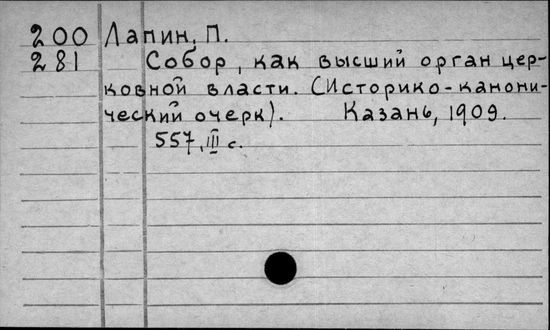 200 Лапин, П.
281 Собор, как высший орган цер-
ковной власти. (Историко-канони-
ческий очерк). Казань, 1909.
557, III с.